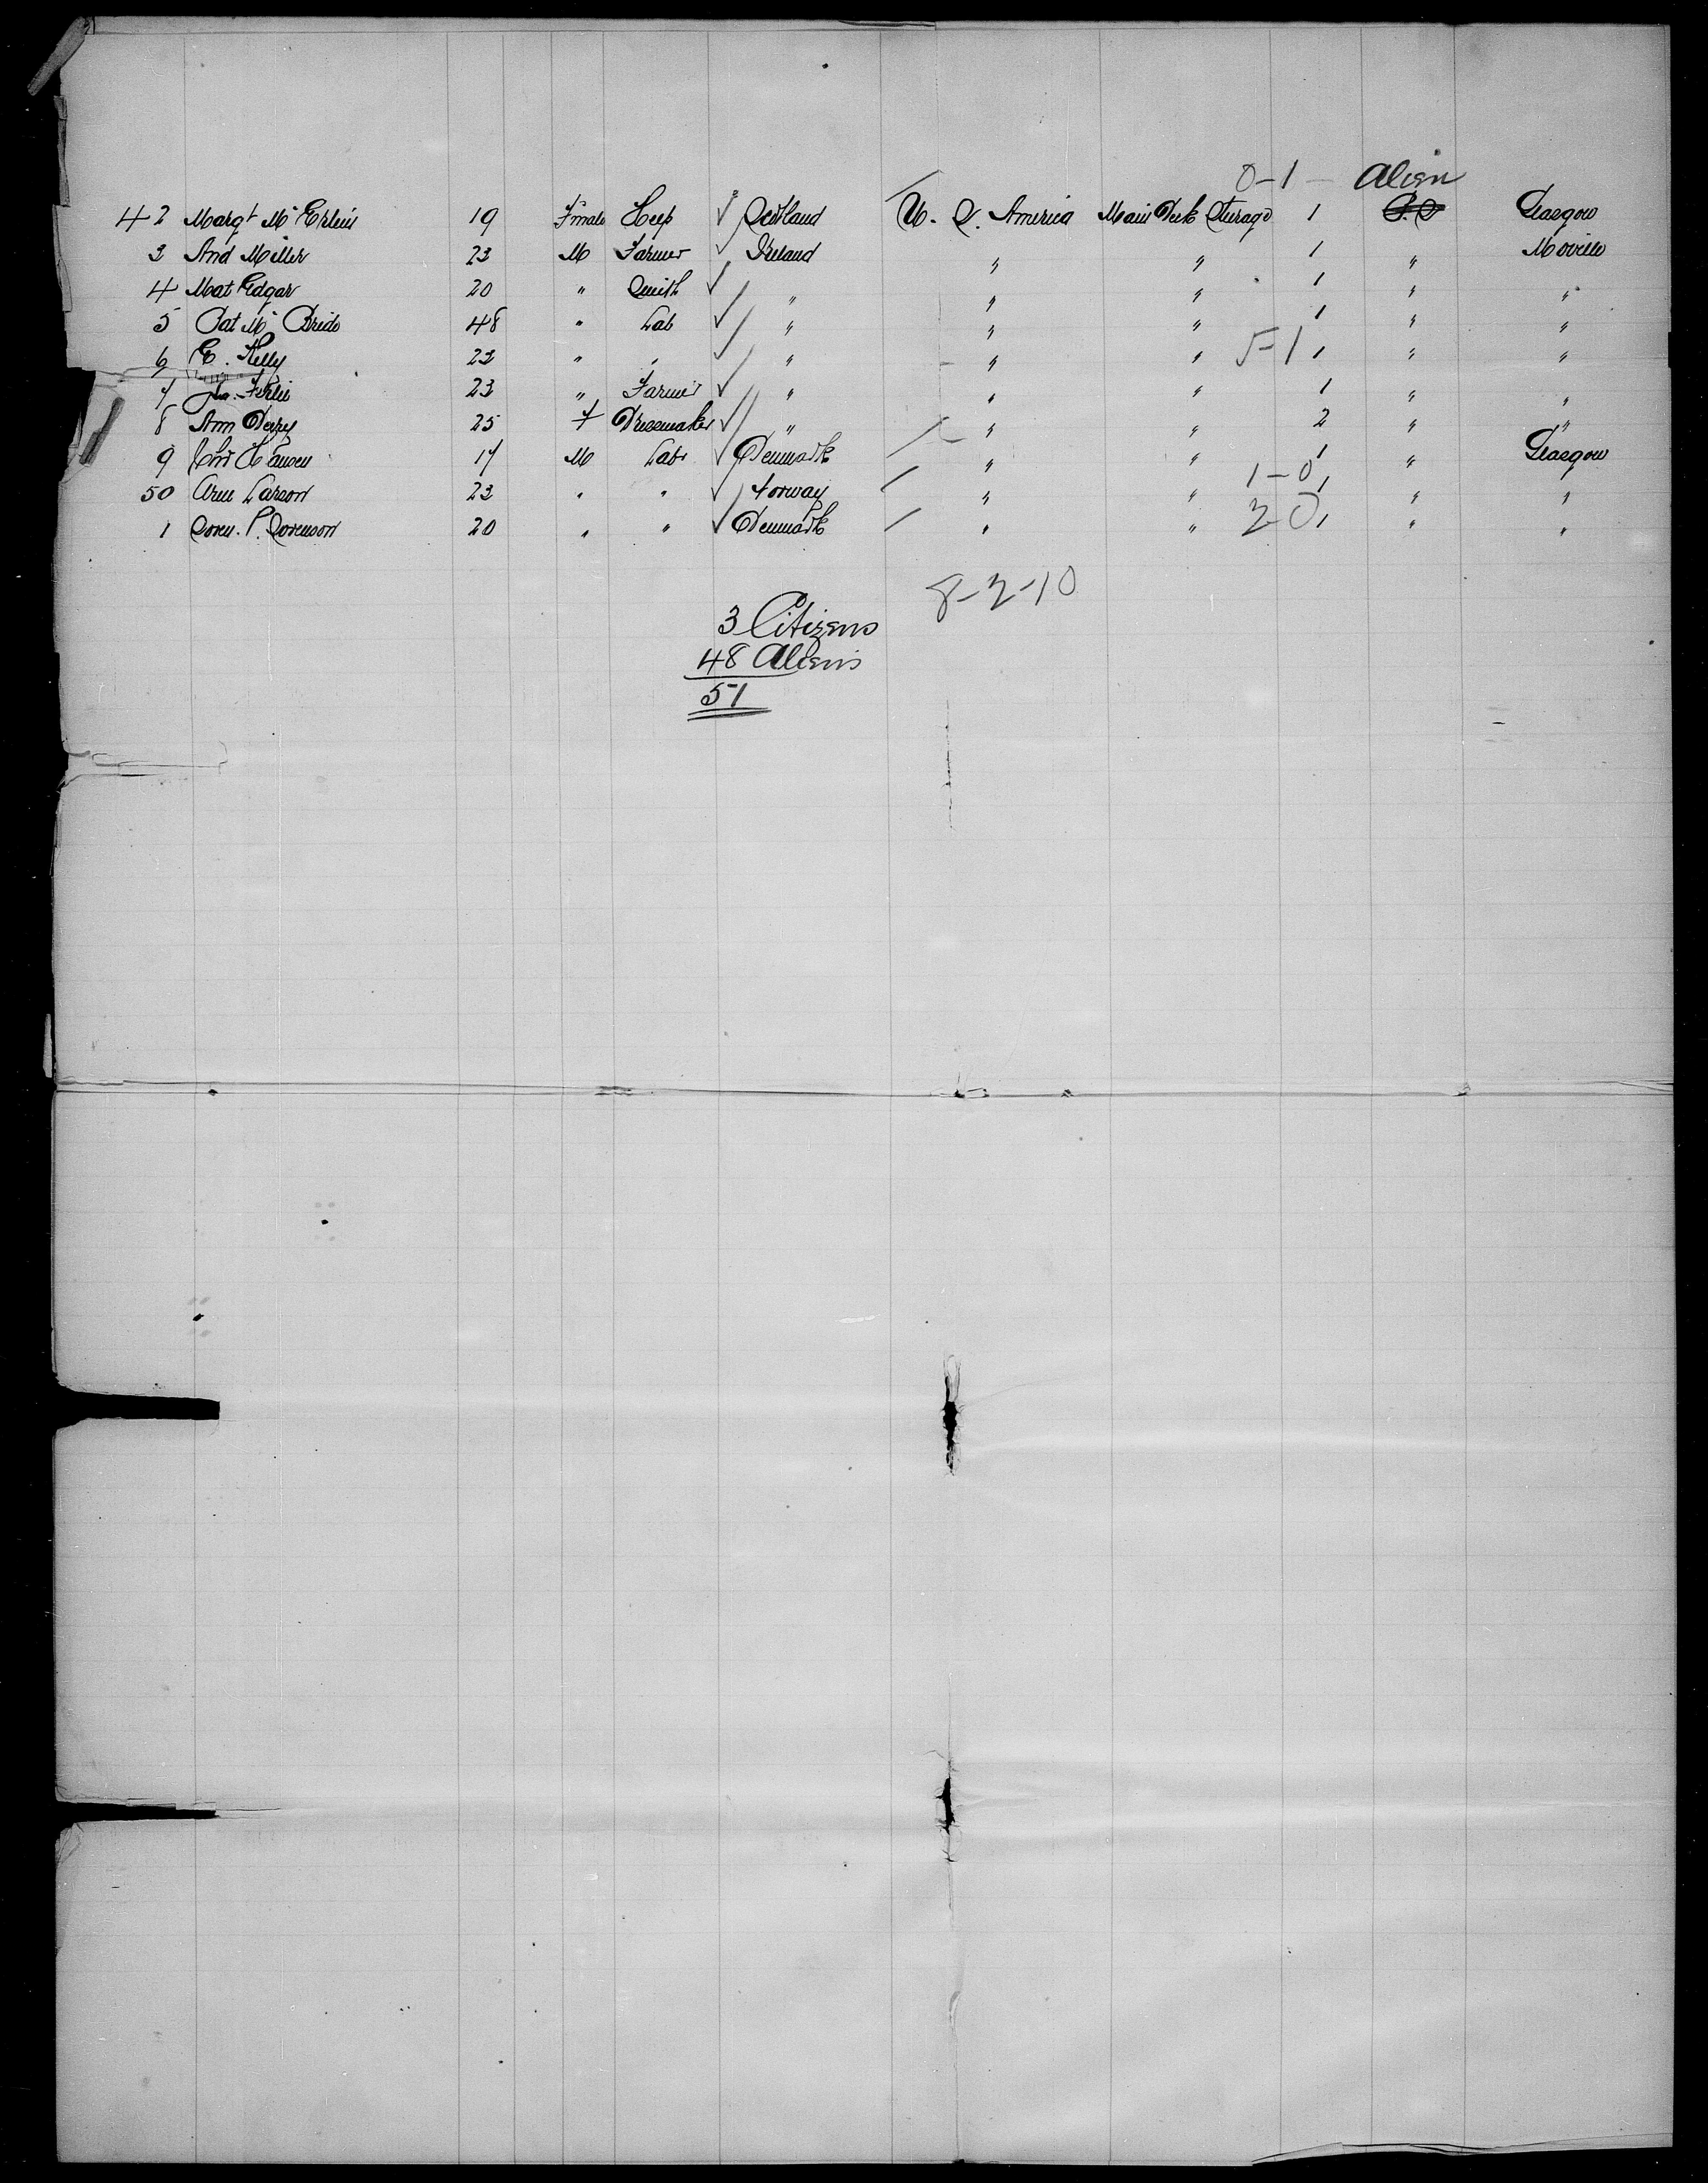 0-1- Alien
42 Margt Mc 19 Female Keep ✓ Scotland U. S. America Main Deck Steerage 1 S.S Glasgow
3 And Miller 23 M Farmer ✓ Ireland " " 1 " Moville
4 Mat Edgar 20 " Smith ✓ " " " 1 " "
5 Pat Mc Bride 48 " Lab ✓ " " " 1 " "
6 E. Kelly 22 " " ✓ " " " 5-1 1 " "
7 23 " Farmer ✓ " " " 1 " "
8 Ann 25 F Dressmaker ✓ " " " 2 " "
9 Hansen 17 M Labr ✓ Denmark " " 1 " Glasgow
50 Arne Larson 23 " " ✓ Norway " " 1-0 1 " "
1 Soren. P. Sorenson 20 " " ✓ Denmark " " 2-0 1 " "
8-2-10
3 Citizens
48 Aliens
51